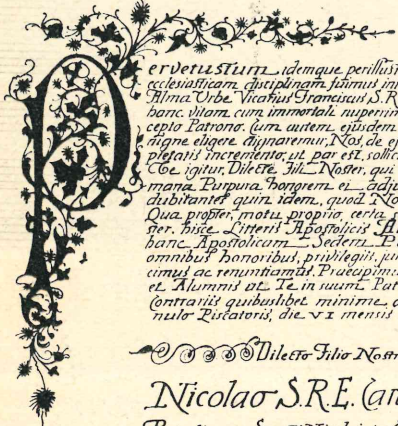 Pervetustum idemque perillust
ecclesiasticam disciplinam fuimus in
Alma Urbe Vicarius Franciscus, S.R
hanc vitam cum immortali nuperrim
cepto Patrono. Cum autem ejusdem
nigne eligere dignaremur, Nos, de ej
pietatis incremento, ut par est, sollic
Te igitur, Dilecte Fili Noster, qui
mana Purpura honorem ei adju
dubitantes quin idem, quod No
Qua propter, motu proprio, certa
ster, hisce Litteris Apostolicis
hanc Apostolicam Sedem P
omnibus honoribus, privilegiis, ju
cimus ac renuntiamus. Praecipim
et Alumnis ut Te in suum Pat
Contrariis quibuslibet minime o
nulo Piscatoris, die VI mensis
Dilecto Filio Nostr
Nicolao S.R.E. Car